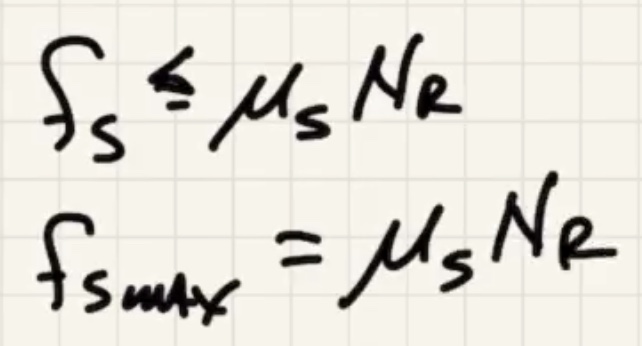 fs ≤ μs NR
fsmax = μs NR